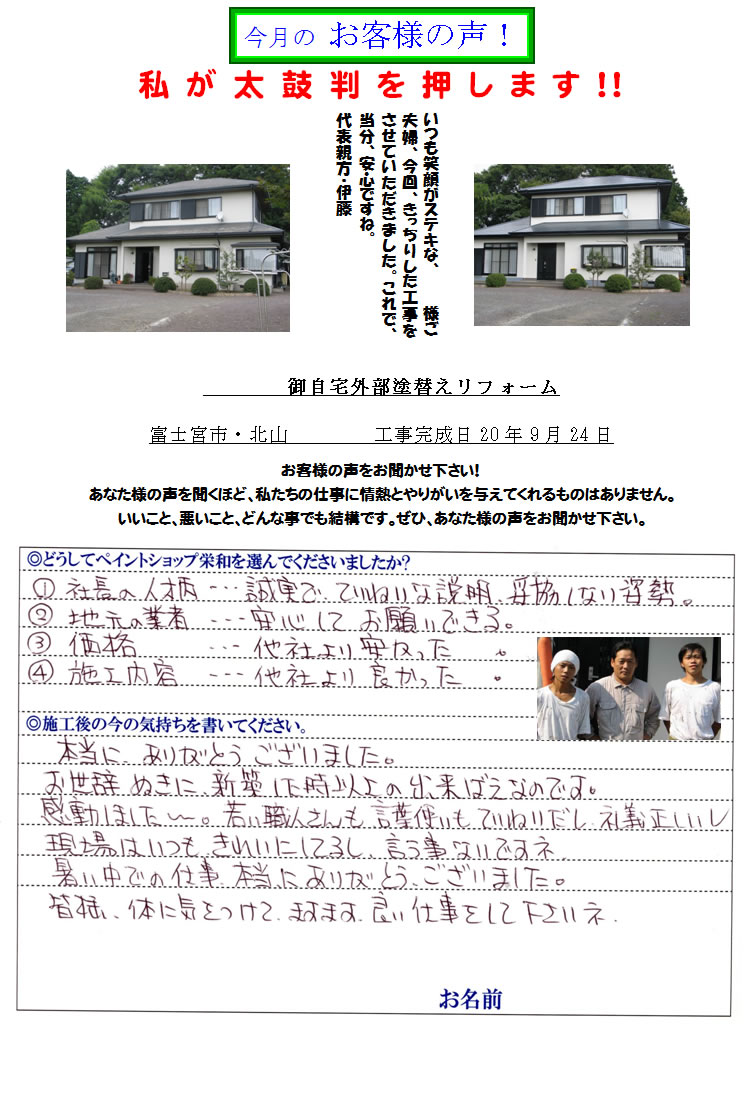 今月の お客様の声！
私が太鼓判を押します!!
いつも笑顔がステキな、 様ご
夫婦、今回、きっちりした工事を
させていただきました。これで、
当分、安心ですね。
代表親方・伊藤
御自宅外部塗替えリフォーム
富士宮市・北山 工事完成日20年9月24日
お客様の声をお聞かせ下さい!
あなた様の声を聞くほど、私たちの仕事に情熱とやりがいを与えてくれるものはありません。
いいこと、悪いこと、どんな事でも結構です。ぜひ、あなた様の声をお聞かせ下さい。
◎どうしてペイントショップ栄和を選んでくださいましたか?
① 社長の人柄 ・・・誠実で、ていねいな説明、妥協しない姿勢。
② 地元の業者 ・・・安心してお願いできる。
③ 価格 ・・・他社より安かった 。
④ 施工内容 ・・・他社より良かった 。
◎施工後の今の気持ちを書いてください。
本当に、ありがとうございました。
お世辞ぬきに、新築した時以上の出来ばえなのです。
感動しました〜。若い職人さんも言葉使いもていねいだし、礼義正しいし
現場はいつもきれいにしてるし、言う事ないですネ、
暑い中での仕事、本当にありがとうございました。
皆様、体に気をつけて、ますます良い仕事をして下さいネ.
お名前